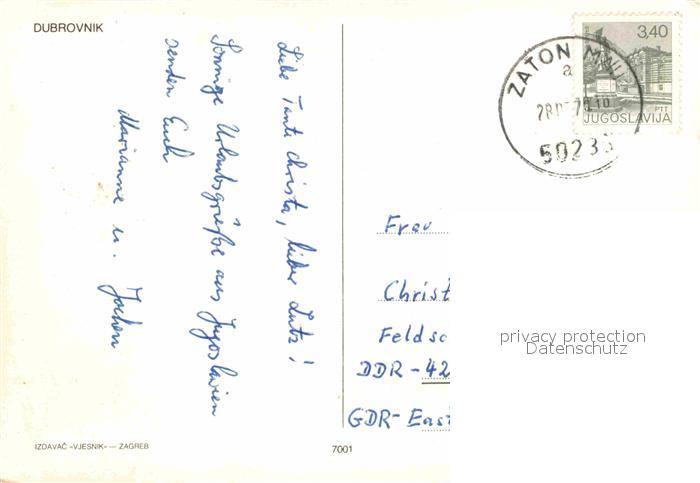 DUBROVNIK
Liebe Tante Christa, lieber Lutz!
Sonnige Urlaubsgrüße aus Jugoslavien
senden Euch
Marianne u. Jochen
IZDAVAČ «VJESNIK» — ZAGREB
7001
3,40
PTT
JUGOSLAVIJA
ZATON MALI
a
50235
Frau
Christ
Feldsc
DDR - 42
GDR - East
privacy protection
Datenschutz